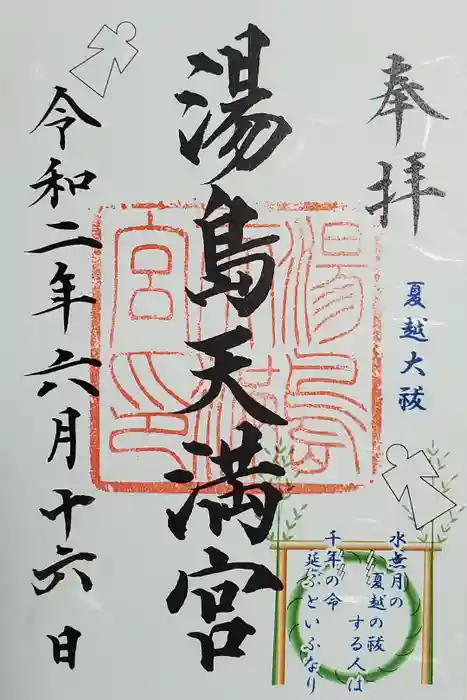 奉拝
夏越大祓
水無月の
夏越の祓
する人は
千年の命
延ぶといふなり
湯島天満宮
湯島天満宮印
令和二年六月十六日